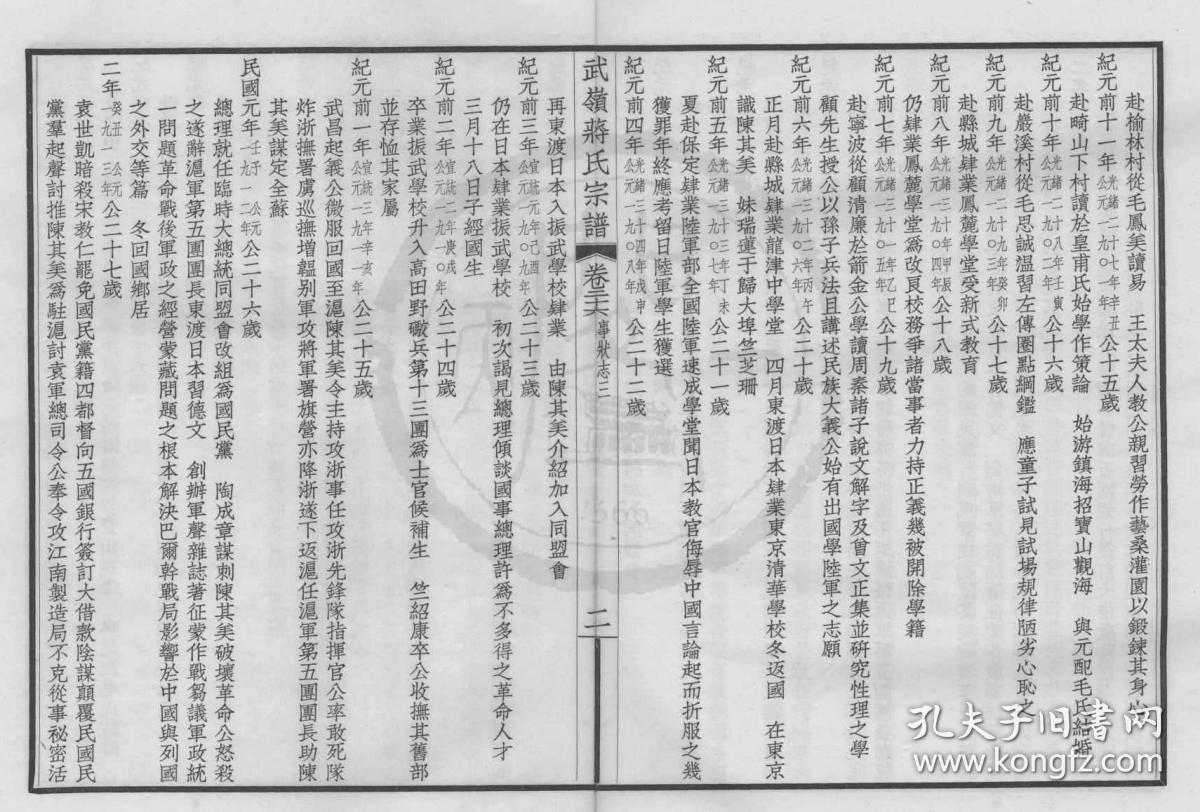 赴榆林村從毛鳳美讀易　王太夫人教公親習勞作藝桑灌園以鍛鍊其身心
紀元前十一年光緒二十七年辛丑公元一九〇一年公十五歲
赴畸山下村讀於皇甫氏始學作策論　始游鎮海招寶山觀海　與元配毛氏結婚
紀元前十年光緒二十八年壬寅公元一九〇二年公十六歲
赴巖溪村從毛思誠溫習左傳圈點綱鑑　應童子試見試場規律陋劣心恥之
紀元前九年光緒二十九年癸卯公元一九〇三年公十七歲
赴縣城肄業鳳麓學堂受新式教育
紀元前八年光緒三十年甲辰公元一九〇四年公十八歲
仍肄業鳳麓學堂爲改良校務爭諸當事者力持正義幾被開除學籍
紀元前七年光緒三十一年乙巳公元一九〇五年公十九歲
赴寧波從顧清廉於箭金公學讀周秦諸子說文解字及曾文正集並研究性理之學
顧先生授公以孫子兵法且講述民族大義公始有出國學陸軍之志願
紀元前六年光緒三十二年丙午公元一九〇六年公二十歲
正月赴縣城肄業龍津中學堂　四月東渡日本肄業東京清華學校冬返國　在東京
識陳其美　妹瑞蓮于歸大埠竺芝珊
紀元前五年光緒三十三年丁未公元一九〇七年公二十一歲
夏赴保定肄業陸軍部全國陸軍速成學堂聞日本教官侮辱中國言論起而折服之幾
獲罪年終應考留日陸軍學生獲選
紀元前四年光緒三十四年戊申公元一九〇八年公二十二歲
武嶺蔣氏宗譜　卷三十　事狀志三　二
再東渡日本入振武學校肄業　由陳其美介紹加入同盟會
紀元前三年宣統元年己酉公元一九〇九年公二十三歲
仍在日本肄業振武學校　初次謁見總理傾談國事總理許爲不多得之革命人才
三月十八日子經國生
紀元前二年宣統二年庚戌公元一九一〇年公二十四歲
卒業振武學校升入高田野礮兵第十三團爲士官候補生　竺紹康卒公收撫其舊部
並存恤其家屬
紀元前一年宣統三年辛亥公元一九一一年公二十五歲
武昌起義公微服回國至滬陳其美令主持攻浙事任攻浙先鋒隊指揮官公率敢死隊
炸浙撫署虜巡撫增韞别軍攻將軍署旗營亦降浙遂下返滬任滬軍第五團團長助陳
其美謀定全蘇
民國元年壬子公元一九一二年公二十六歲
總理就任臨時大總統同盟會改組爲國民黨　陶成章謀刺陳其美破壞革命公怒殺
之遂辭滬軍第五團團長東渡日本習德文　創辦軍聲雜誌著征蒙作戰芻議軍政統
一問題革命戰後軍政之經營蒙藏問題之根本解決巴爾幹戰局影響於中國與列國
之外交等篇　冬回國鄉居
二年癸丑公元一九一三年公二十七歲
袁世凱暗殺宋教仁罷免國民黨籍四都督向五國銀行簽訂大借款陰謀顛覆民國民
黨羣起聲討推陳其美爲駐滬討袁軍總司令公奉令攻江南製造局不克從事秘密活
孔夫子旧书网
www.kongfz.com